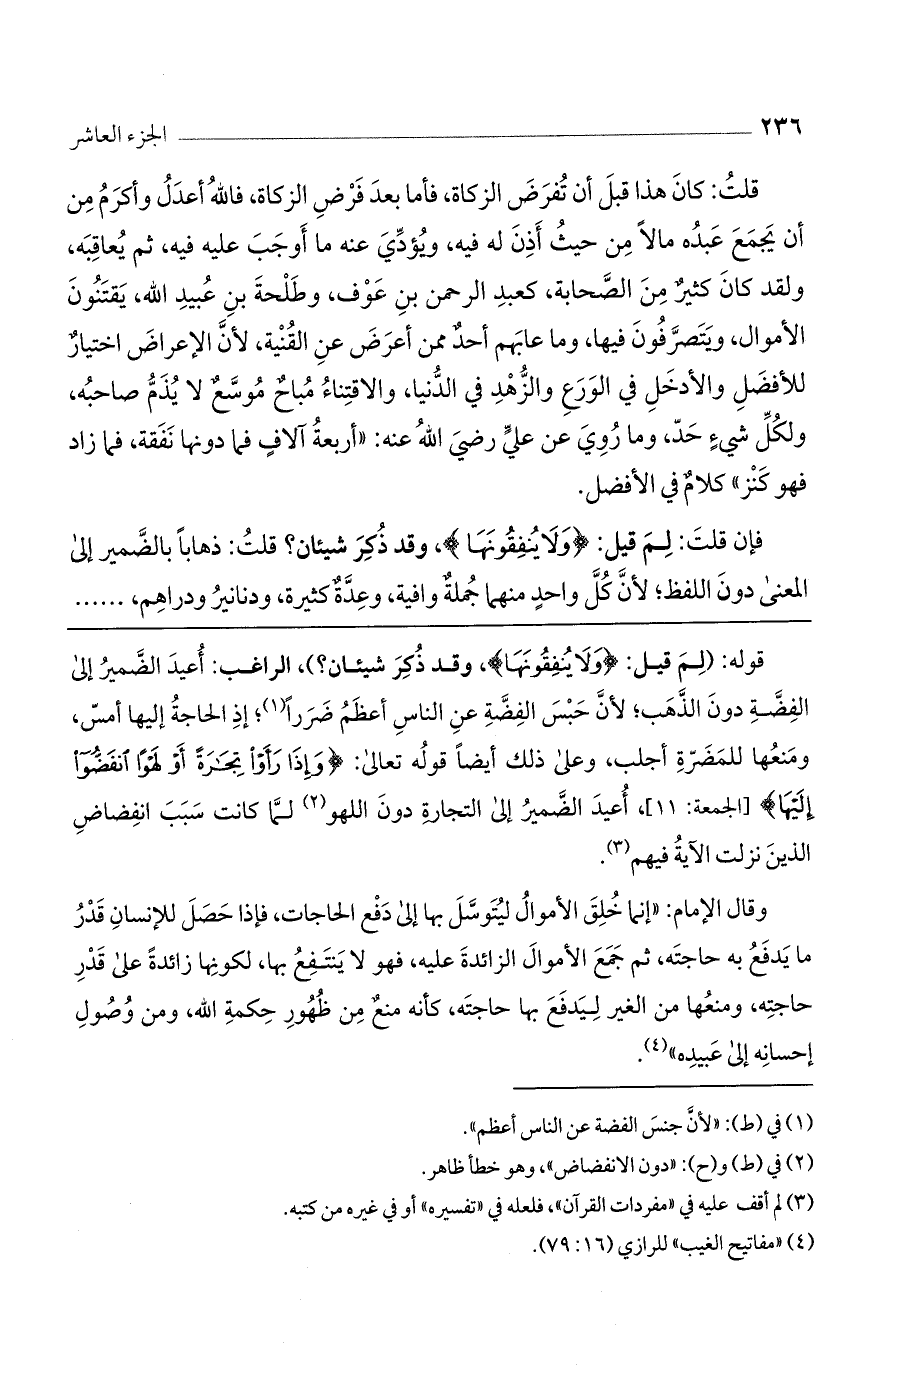 ٢٣٦ الجزء العاشر
قلتُ: كانَ هذا قبلَ أن تُفرَضَ الزكاة، فأما بعدَ فَرْضِ الزكاة، فاللهُ أعدَلُ وأكرَمُ مِن
أن يَجمَعَ عَبدُه مالاً مِن حيثُ أَذِنَ له فيه، ويُؤدِّيَ عنه ما أَوجَبَ عليه فيه، ثم يُعاقِبَه،
ولقد كانَ كثيرٌ مِنَ الصَّحابة، كعبدِ الرحمن بنِ عَوْف، وطَلْحةَ بنِ عُبيدِ الله، يَقتَنُونَ
الأموال، ويَتَصرَّفُونَ فيها، وما عابَهم أحدٌ ممن أعرَضَ عنِ القُنْية، لأنَّ الإعراضَ اختيارٌ
للأفضَلِ والأدخَلِ في الوَرَعِ والزُّهْدِ في الدُّنيا، والاقتِناءُ مُباحٌ مُوسَّعٌ لا يُذَمُّ صاحبُه،
ولكُلِّ شيءٍ حَدّ، وما رُوِيَ عن عليٍّ رضيَ اللهُ عنه: «أربعةُ آلافٍ فما دونها نَفَقة، فما زاد
فهو كَنْز» كلامٌ في الأفضل.
فإن قلتَ: لِمَ قيل: ﴿وَلَا يُنفِقُونَهَا﴾، وقد ذُكِرَ شيئان؟ قلتُ: ذهاباً بالضَّمير إلىٰ
المعنىٰ دونَ اللفظ؛ لأنَّ كُلَّ واحدٍ منهما جُملةٌ وافية، وعِدَّةٌ كثيرة، ودنانيرُ ودراهِم، ......
قوله: (لِمَ قيل: ﴿وَلَا يُنفِقُونَهَا﴾، وقد ذُكِرَ شيئان؟)، الراغب: أُعيدَ الضَّميرُ إلىٰ
الفِضَّةِ دونَ الذَّهَب؛ لأنَّ حَبْسَ الفِضَّةِ عنِ الناسِ أعظَمُ ضَرَراً(١)؛ إذِ الحاجةُ إليها أمسّ،
ومَنعُها للمَضَرّةِ أجلب، وعلىٰ ذلك أيضاً قولُه تعالىٰ: ﴿وَإِذَا رَأَوْا۟ تِجَـٰرَةً أَوْ لَهْوًا ٱنفَضُّوٓا۟
إِلَيْهَا﴾ [الجمعة: ١١]، أُعيدَ الضَّميرُ إلىٰ التجارةِ دونَ اللهو(٢) لـمَّا كانت سَبَبَ انفِضاضِ
الذينَ نزلت الآيةُ فيهم(٣).
وقال الإمام: «إنما خُلِقَ الأموالُ ليُتَوسَّلَ بها إلىٰ دَفْعِ الحاجات، فإذا حَصَلَ للإنسانِ قَدْرُ
ما يَدفَعُ به حاجتَه، ثم جَمَعَ الأموالَ الزائدةَ عليه، فهو لا يَنتَفِعُ بها، لكونِها زائدةً علىٰ قَدْرِ
حاجتِه، ومنعُها من الغير لِيَدفَعَ بها حاجتَه، كأنه منعٌ مِن ظُهُورِ حِكمةِ الله، ومن وُصُولِ
إحسانِه إلىٰ عَبيدِه»(٤).
(١) في (ط): «لأنَّ جنسَ الفضة عن الناس أعظم».
(٢) في (ط) و(ح): «دون الانفضاض»، وهو خطأ ظاهر.
(٣) لم أقف عليه في «مفردات القرآن»، فلعله في «تفسيره» أو في غيره من كتبه.
(٤) «مفاتيح الغيب» للرازي (١٦: ٧٩).